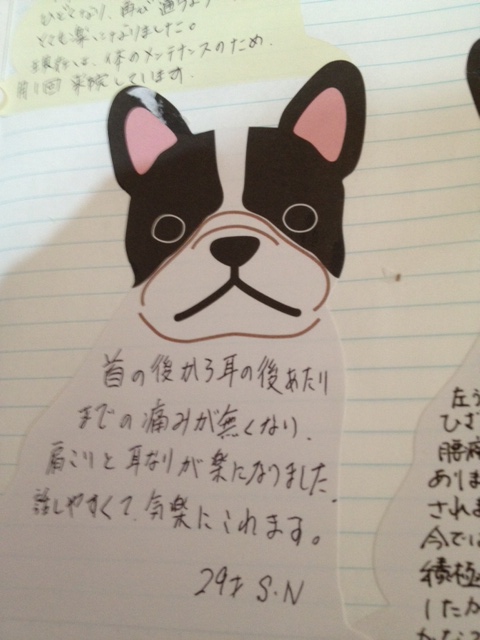 ひどくなり、再び通うように
とても楽になりました。
現在は、体のメンテナンスのため、
来院しています。
首の後から耳の後あたり
までの痛みが無くなり、
肩こりと耳なりが楽になりました。
話しやすくて、気楽にこれます。
29才 S.N
左う
ひざ
腰痛
ありま
されま
今では
積極
したか